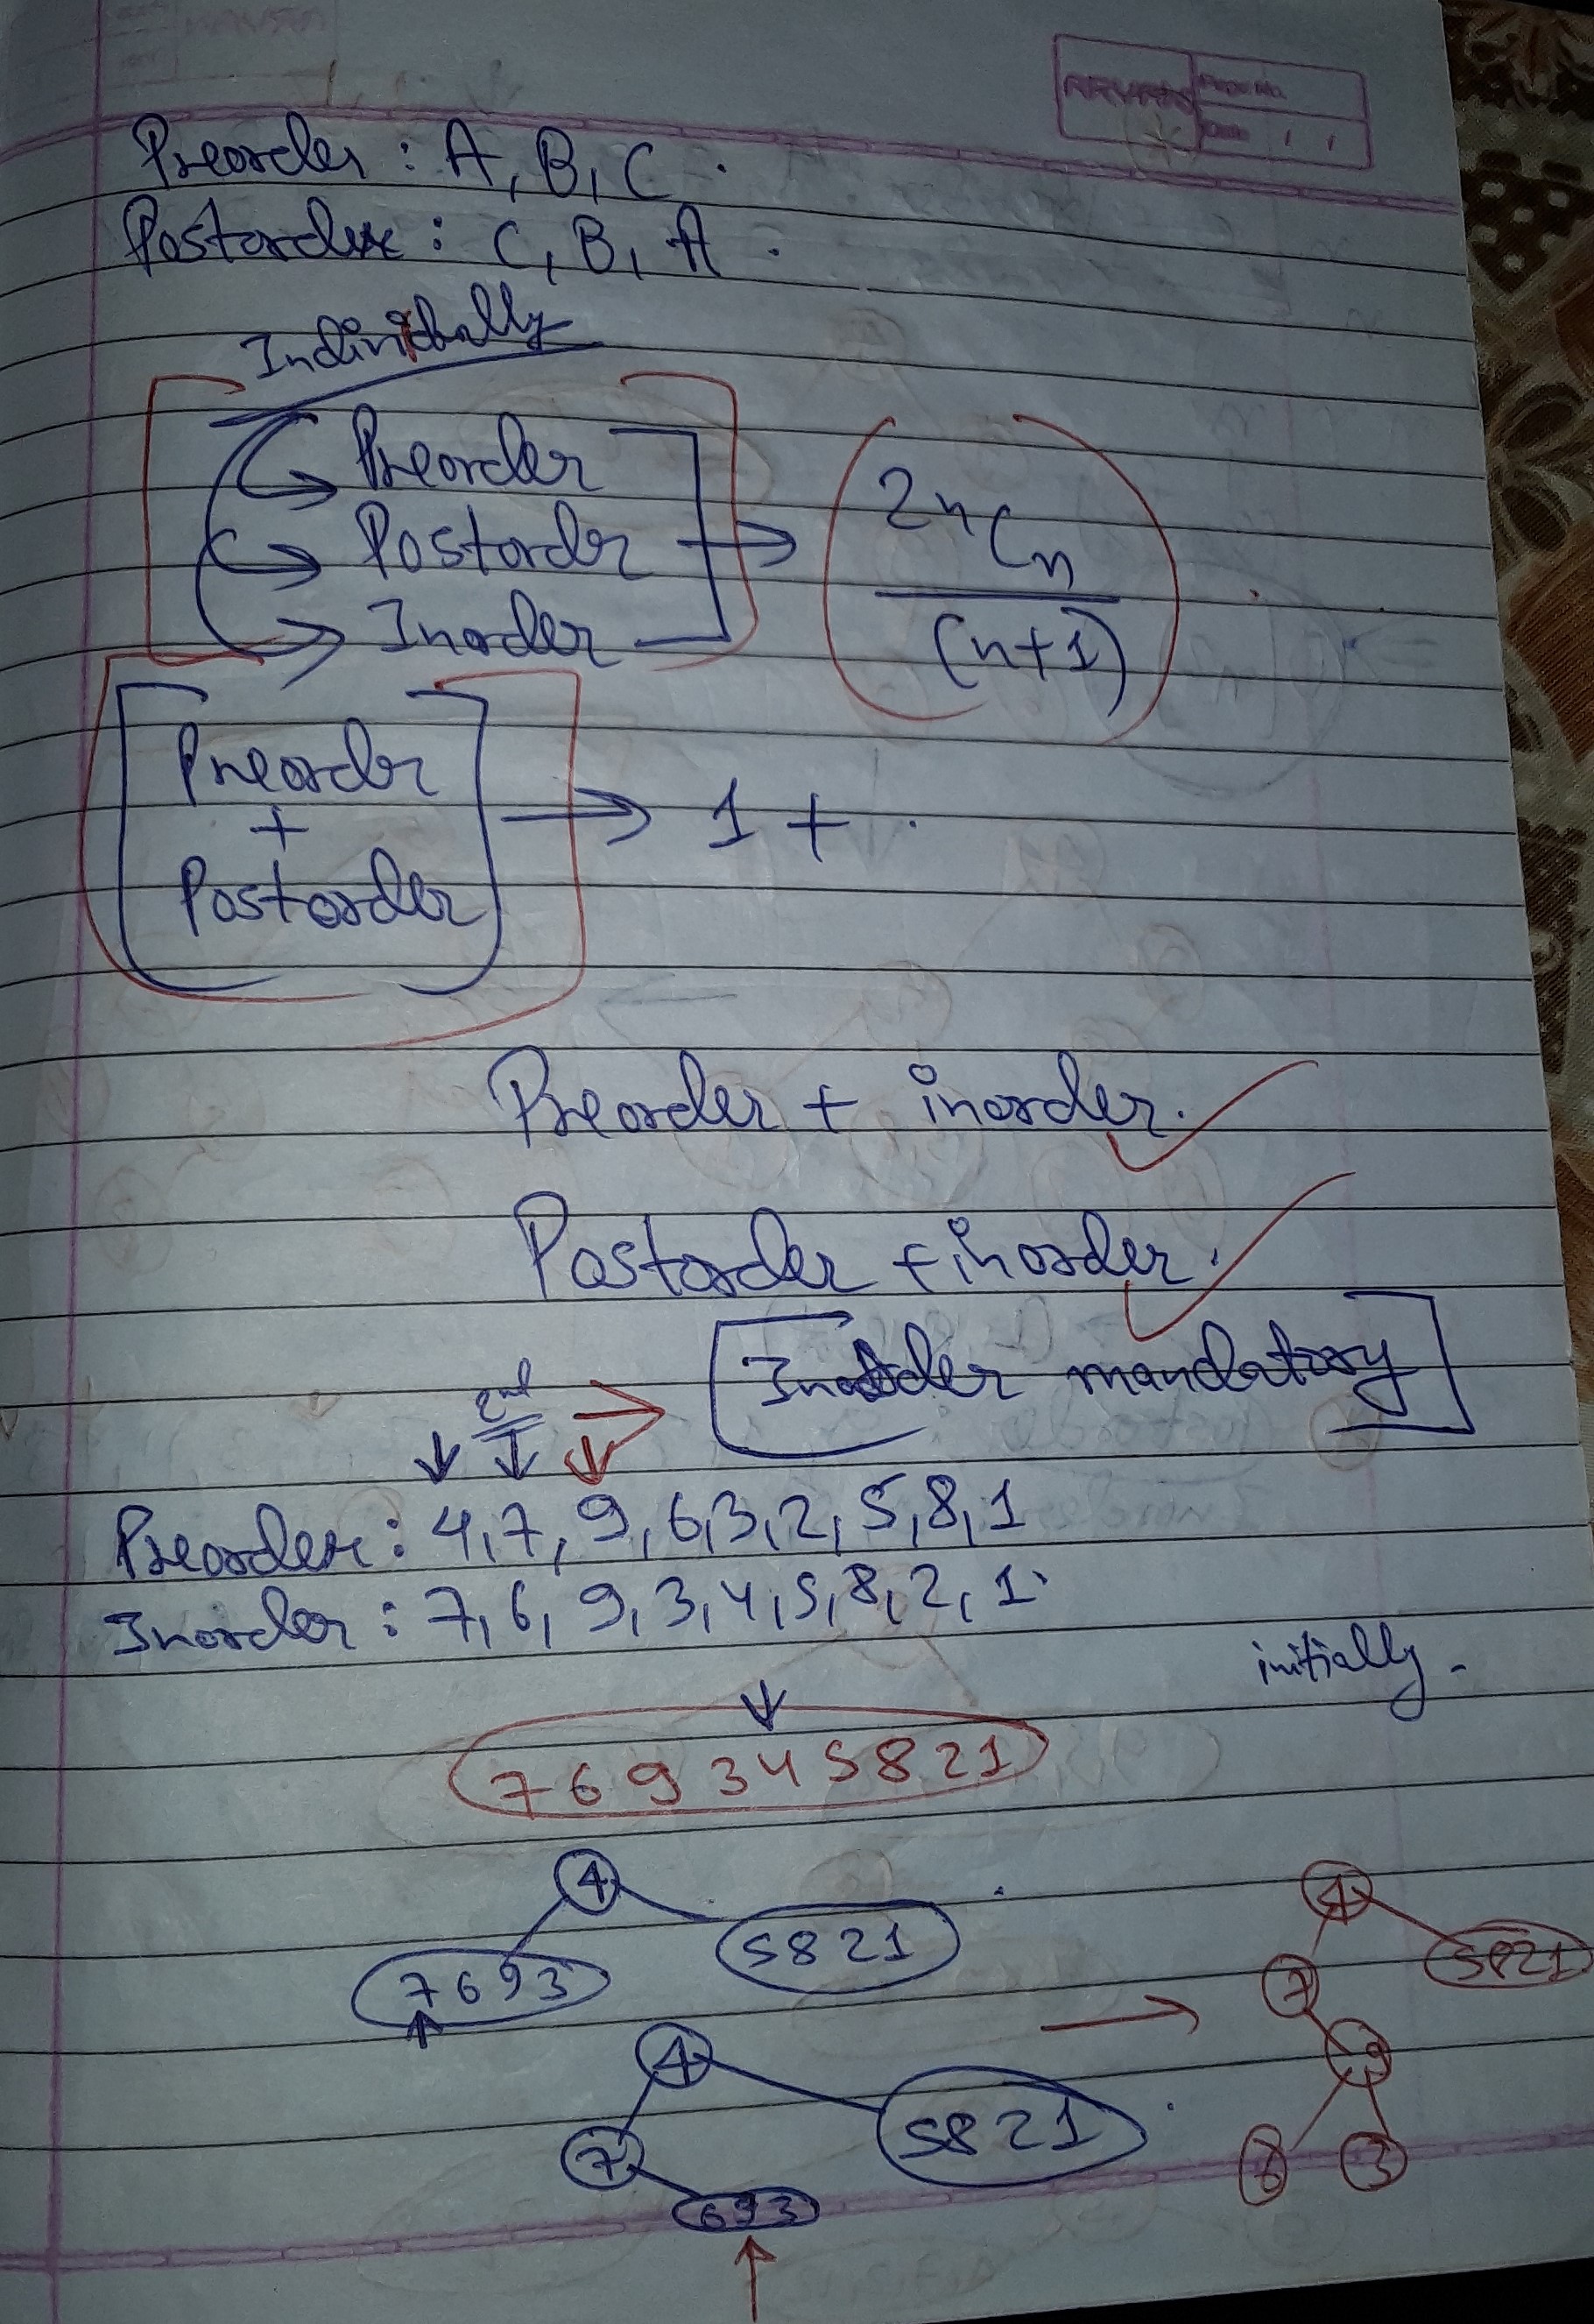 Preorder : A, B, C .
Postorder : C, B, A .
Individually
Preorder
Postorder
Inorder
2nCn
(n+1)
Preorder
+
Postorder
1 + .
Preorder + inorder.
Postorder + inorder.
Inorder mandatory
2nd
Preorder : 4,7, 9, 6,3,2, 5,8,1
Inorder : 7, 6, 9, 3, 4, 5, 8, 2, 1
initially
7 6 9 3 4 5 8 2 1
4
7 6 9 3
5 8 2 1
4
7
6 9 3
5 8 2 1
4
7
5 8 2 1
9
6
3